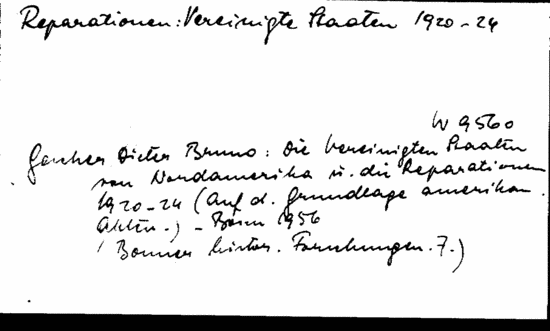 Reparationen: Vereinigte Staaten 1920-24
W 9560
Gescher Dieter Bruno: Die Vereinigten Staaten
von Nordamerika u. die Reparationen
1920-24 (Auf d. Grundlage amerikan.
Akten.) - Bonn 1956
(Bonner histor. Forschungen. 7.)